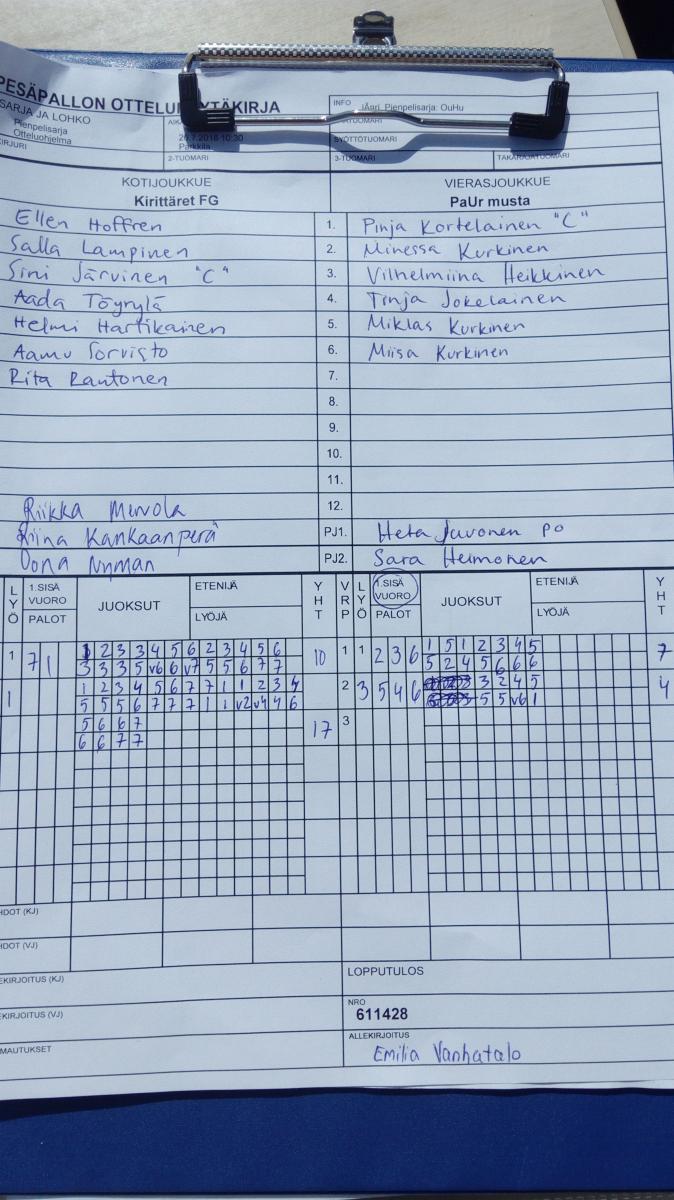 PESÄPALLON OTTELU YTÄKIRJA
INFO jÄnri Pienpelisarja: OuHu
SARJA JA LOHKO
Pienpelisarja
Otteluohjelma
26.7.2016 10:30
Parkkila
SYÖTTÖTUOMARI
2-TUOMARI
3-TUOMARI
TAKARAJATUOMARI
KOTIJOUKKUE VIERASJOUKKUE
Kirittäret FG PaUr musta
Ellen Hoffren 1. Pinja Kortelainen "C"
Salla Lampinen 2. Minessa Kurkinen
Sini Järvinen "C" 3. Vilhelmiina Heikkinen
Aada Töyrylä 4. Tinja Jokelainen
Helmi Hartikainen 5. Miklas Kurkinen
Aamu Sorvisto 6. Miisa Kurkinen
Rita Rautonen 7.
8.
9.
10.
11.
Riikka Mervola 12.
Riina Kankaanperä PJ1. Heta Juvonen PO
Oona Nyman PJ2. Sara Heimonen
LYÖ 1.SISÄ VUORO PALOT JUOKSUT ETENIJÄ LYÖJÄ YHT VRP LYÖ 1.SISÄ VUORO PALOT JUOKSUT ETENIJÄ LYÖJÄ YHT
1 7 1 1 2 3 3 4 5 6 2 3 4 5 6 10 1 1 2 3 6 1 5 1 2 3 4 5 7
3 3 3 5 v6 6 v7 5 5 6 7 7 5 2 4 5 6 6 6
1 1 2 3 4 5 6 7 7 1 1 2 3 4 2 3 5 4 6 3 2 4 5 4
5 5 5 6 7 7 7 1 1 v2 v4 4 6 5 5 v6 1
5 6 6 7 17 3
6 6 7 7
HDOT (KJ)
HDOT (VJ)
EKIRJOITUS (KJ) LOPPUTULOS
EKIRJOITUS (VJ) NRO
611428
MAUTUKSET ALLEKIRJOITUS
Emilia Vanhatalo